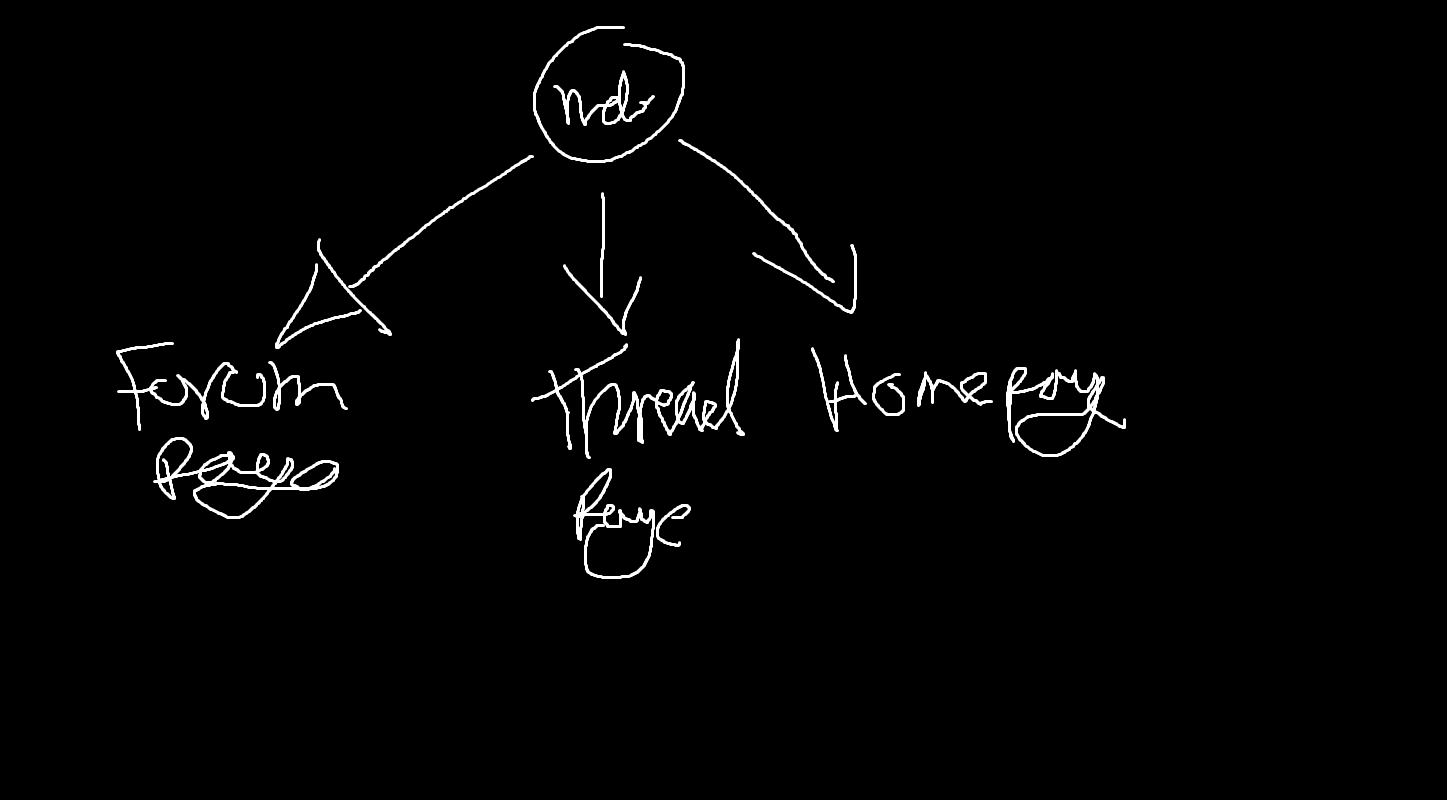 Forum
Page
Thread
Page
Homepage